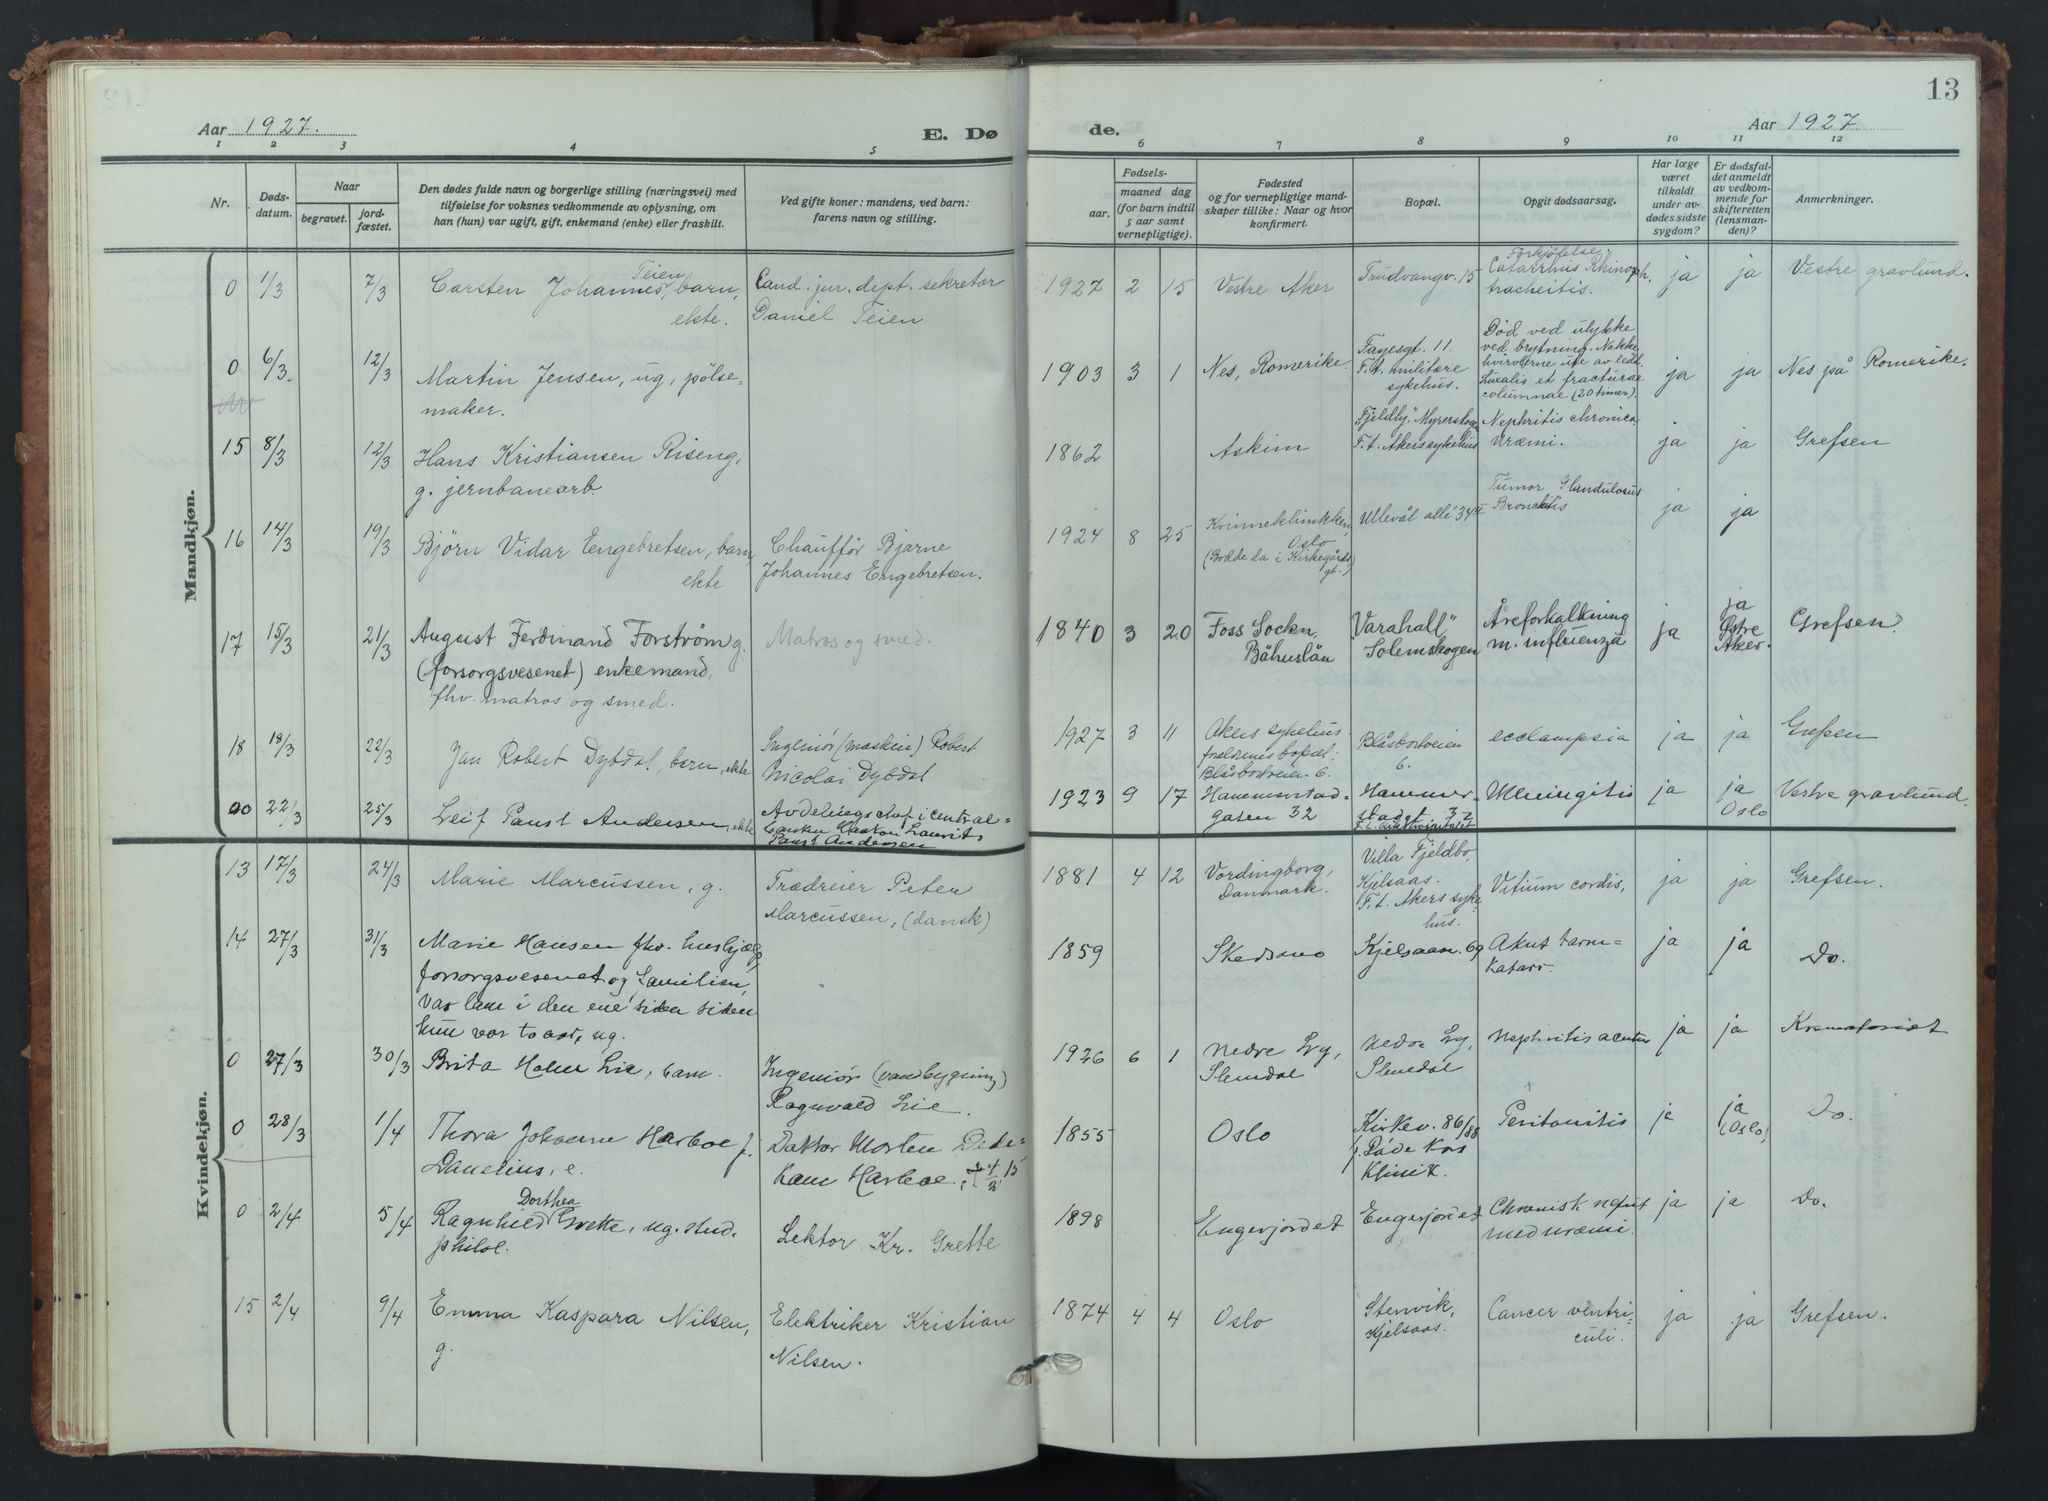 13
Aar 1927.
E. Dø
de.
Aar 1927
1 2 3 4 5 6 7 8 9 10 11 12
Nr.
Døds-
datum.
Naar
begravet.
jord-
fæstet.
Den dødes fulde navn og borgerlige stilling (næringsvei) med
tilføielse for voksnes vedkommende av oplysning, om
han (hun) var ugift, gift, enkemand (enke) eller fraskilt.
Ved gifte koner: mandens, ved barn:
farens navn og stilling.
Fødsels-
aar.
maaned dag
(for barn indtil
5 aar samt
vernepligtige).
Fødested
og for vernepligtige mand-
skaper tillike: Naar og hvor
konfirmert.
Bopæl.
Opgit dødsaarsag.
Har læge
været
tilkaldt
under av-
dødes sidste
sygdom?
Er dødsfal-
det anmeldt
av vedkom-
mende for
skifteretten
(lensman-
den)?
Anmerkninger.
Mandkjøn.
0 1/3 7/3
Teien
Carsten Johannes, barn,
ekte.
Cand. jur. dept. sekretær
Daniel Teien
1927 2 15 Vestre Aker Trudvangv. 15
Forkjølelse.
Catarrhus Rhinoph.
tracheitis.
ja ja Vestre gravlund.
0 6/3 12/3
Martin Jensen, ug, pölse-
maker.
1903 3 1 Nes, Romerike.
Fayesgt. 11.
F.t. militære
sykehus.
Död ved ulykke
ved brytning. Nakke-
hvirvlerne ute av ledd.
Luxatis et fracturae
columnae (20 timer).
ja ja Nes på Romerike.
15 8/3 12/3
Hans Kristiansen Riseng,
g. jernbanearb.
1862 Askim
"Fjeldly," Myrerskogen
F.t. Akers sykehus
Nephritis chronica
Uræmi.
ja ja Grefsen
16 14/3 19/3
Björn Vidar Engebretsen, barn,
ekte
Chaufför Bjarne
Johannes Engebretsen.
1924 8 25
Kvinneklinikken,
Oslo
(Bodde da i Kirkegårds
gt.)
Ullevål allé 34 II
Tumor Glandulosus
Bronchitis
ja ja
17 15/3 21/3
August Ferdinand Forström g.
(forsorgsvesenet) enkemand,
fhv. matros og smed.
Matros og smed.
1840 3 20
Foss Socken,
Båhuslän
"Varahall"
Solemskogen
Åreforkalkning
m. influenza
ja
ja
Østre
Aker.
Grefsen.
18 18/3 22/3
Jan Robert Dybdal, barn, ekte
Ingeniør (maskin) Robert
Nicolai Dybdal
1927 3 11
Akers sykehus
foreldrenes bopæl:
Blåsbortveien 6.
Blåsbortveien
6.
ecclampsia
ja ja Grefsen
00 22/3 25/3
Leif Paust Andersen, ekte
Avdelingschef i central-
banken Haakon Lauritz
Paust Andersen
1923 9 17
Hammerstad-
gaten 32
Hammer-
stadgt 32
Meningitis
ja
ja
Oslo
Vestre gravlund.
Kvindekjøn.
13 17/3 24/3
Marie Marcussen, g.
Trædreier Peter
Marcussen, (dansk)
1881 4 12
Vordingborg,
Danmark.
Villa Fjeldbo,
Kjelsaas.
F.t. Akers syke-
hus.
Vitium cordis,
ja ja Grefsen.
14 27/3 31/3
Marie Hansen fhv. husbjælp,
forsorgsvesenet og familien,
var lam i den ene siden siden
hun var to aar, ug.
1859 Skedsmo Kjelsaasv. 69
Akut tarm-
katarr.
ja ja Do.
0 27/3 30/3
Brita Holm Lie, barn.
Ingeniör (vandbygning)
Ragnvald Lie.
1926 6 1
Nedre Ly,
Slemdal
Nedre Ly,
Slemdal
Nephritis acuta
ja ja Krematoriet
0 28/3 1/4
Thora Johanne Harboe f.
Danelius, e.
Doktor Morten Dede-
kam Harboe, † 4/2 15
1855 Oslo
Kirkev. 86/88
f. Røde Kors
Klinik.
Peritonitis
ja
ja
(Oslo)
Do.
0 2/4 5/4
Dorthea
Ragnhild Grette, ug. stud.
philol.
Lektor Kr. Grette
1898 Engerjordet Engerjordet
Chronisk nefrit
med uræmi.
ja ja Do.
15 2/4 9/4
Emma Kaspara Nilsen,
g.
Elektriker Kristian
Nilsen.
1874 4 4 Oslo
Stenvik,
Kjelsaas.
Cancer ventri-
culi.
ja ja Grefsen.